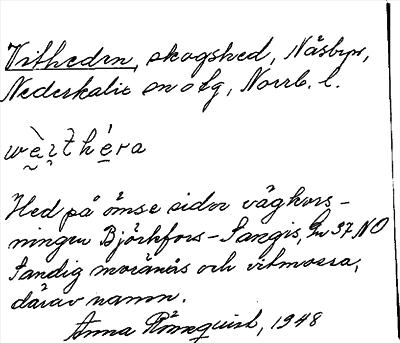 Vitheden, skogshed, Näsbyn,
Nederkalix sn o tg, Norrb. l.
Hed på ömse sidor vägkors-
ningen Björkfors-Sangis, En 37 NO
Sandig moränås och vitmossa,
därav namn.
Anna Rönnquist, 1948